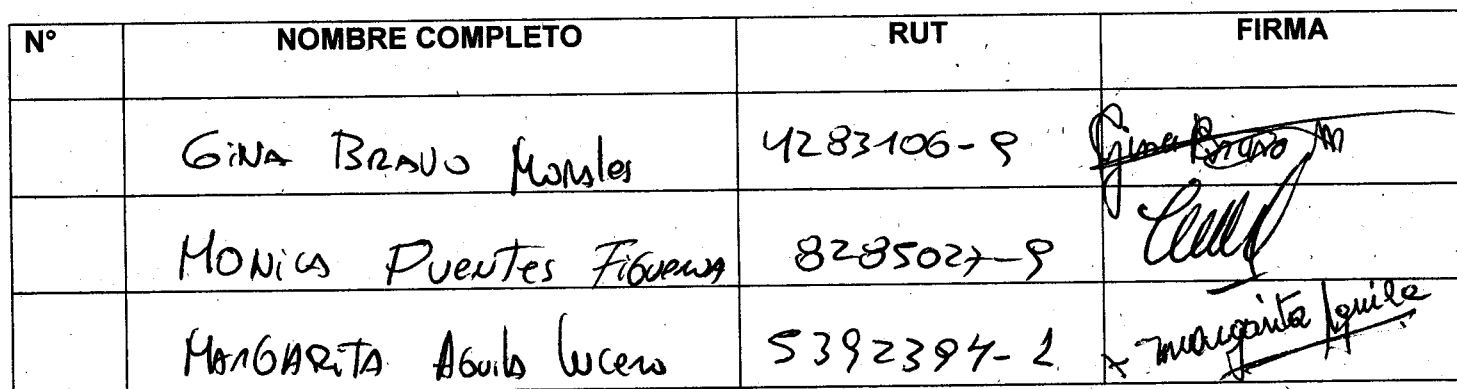 N° NOMBRE COMPLETO RUT FIRMA
GINA BRAVO Morales 4283106-9 Gina Bravo M
MONICA PUENTES FIGUEROA 8285027-9
MARGARITA Aguila Lucero 5392394-1 x Margarita Aguila